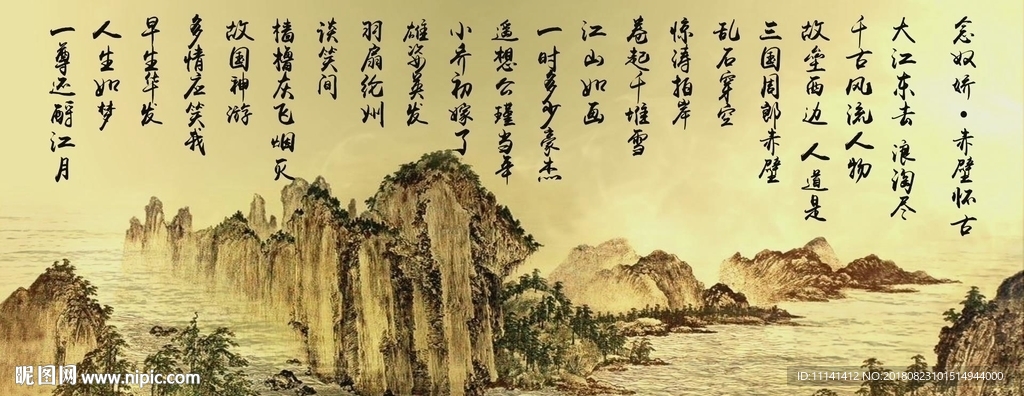 念奴娇·赤壁怀古
大江东去 浪淘尽
千古风流人物
故垒西边 人道是
三国周郎赤壁
乱石穿空
惊涛拍岸
卷起千堆雪
江山如画
一时多少豪杰
遥想公瑾当年
小乔初嫁了
雄姿英发
羽扇纶巾
谈笑间
樯橹灰飞烟灭
故国神游
多情应笑我
早生华发
人生如梦
一尊还酹江月
昵图网 www.nipic.com
ID:11141412 NO:20180823101514944000